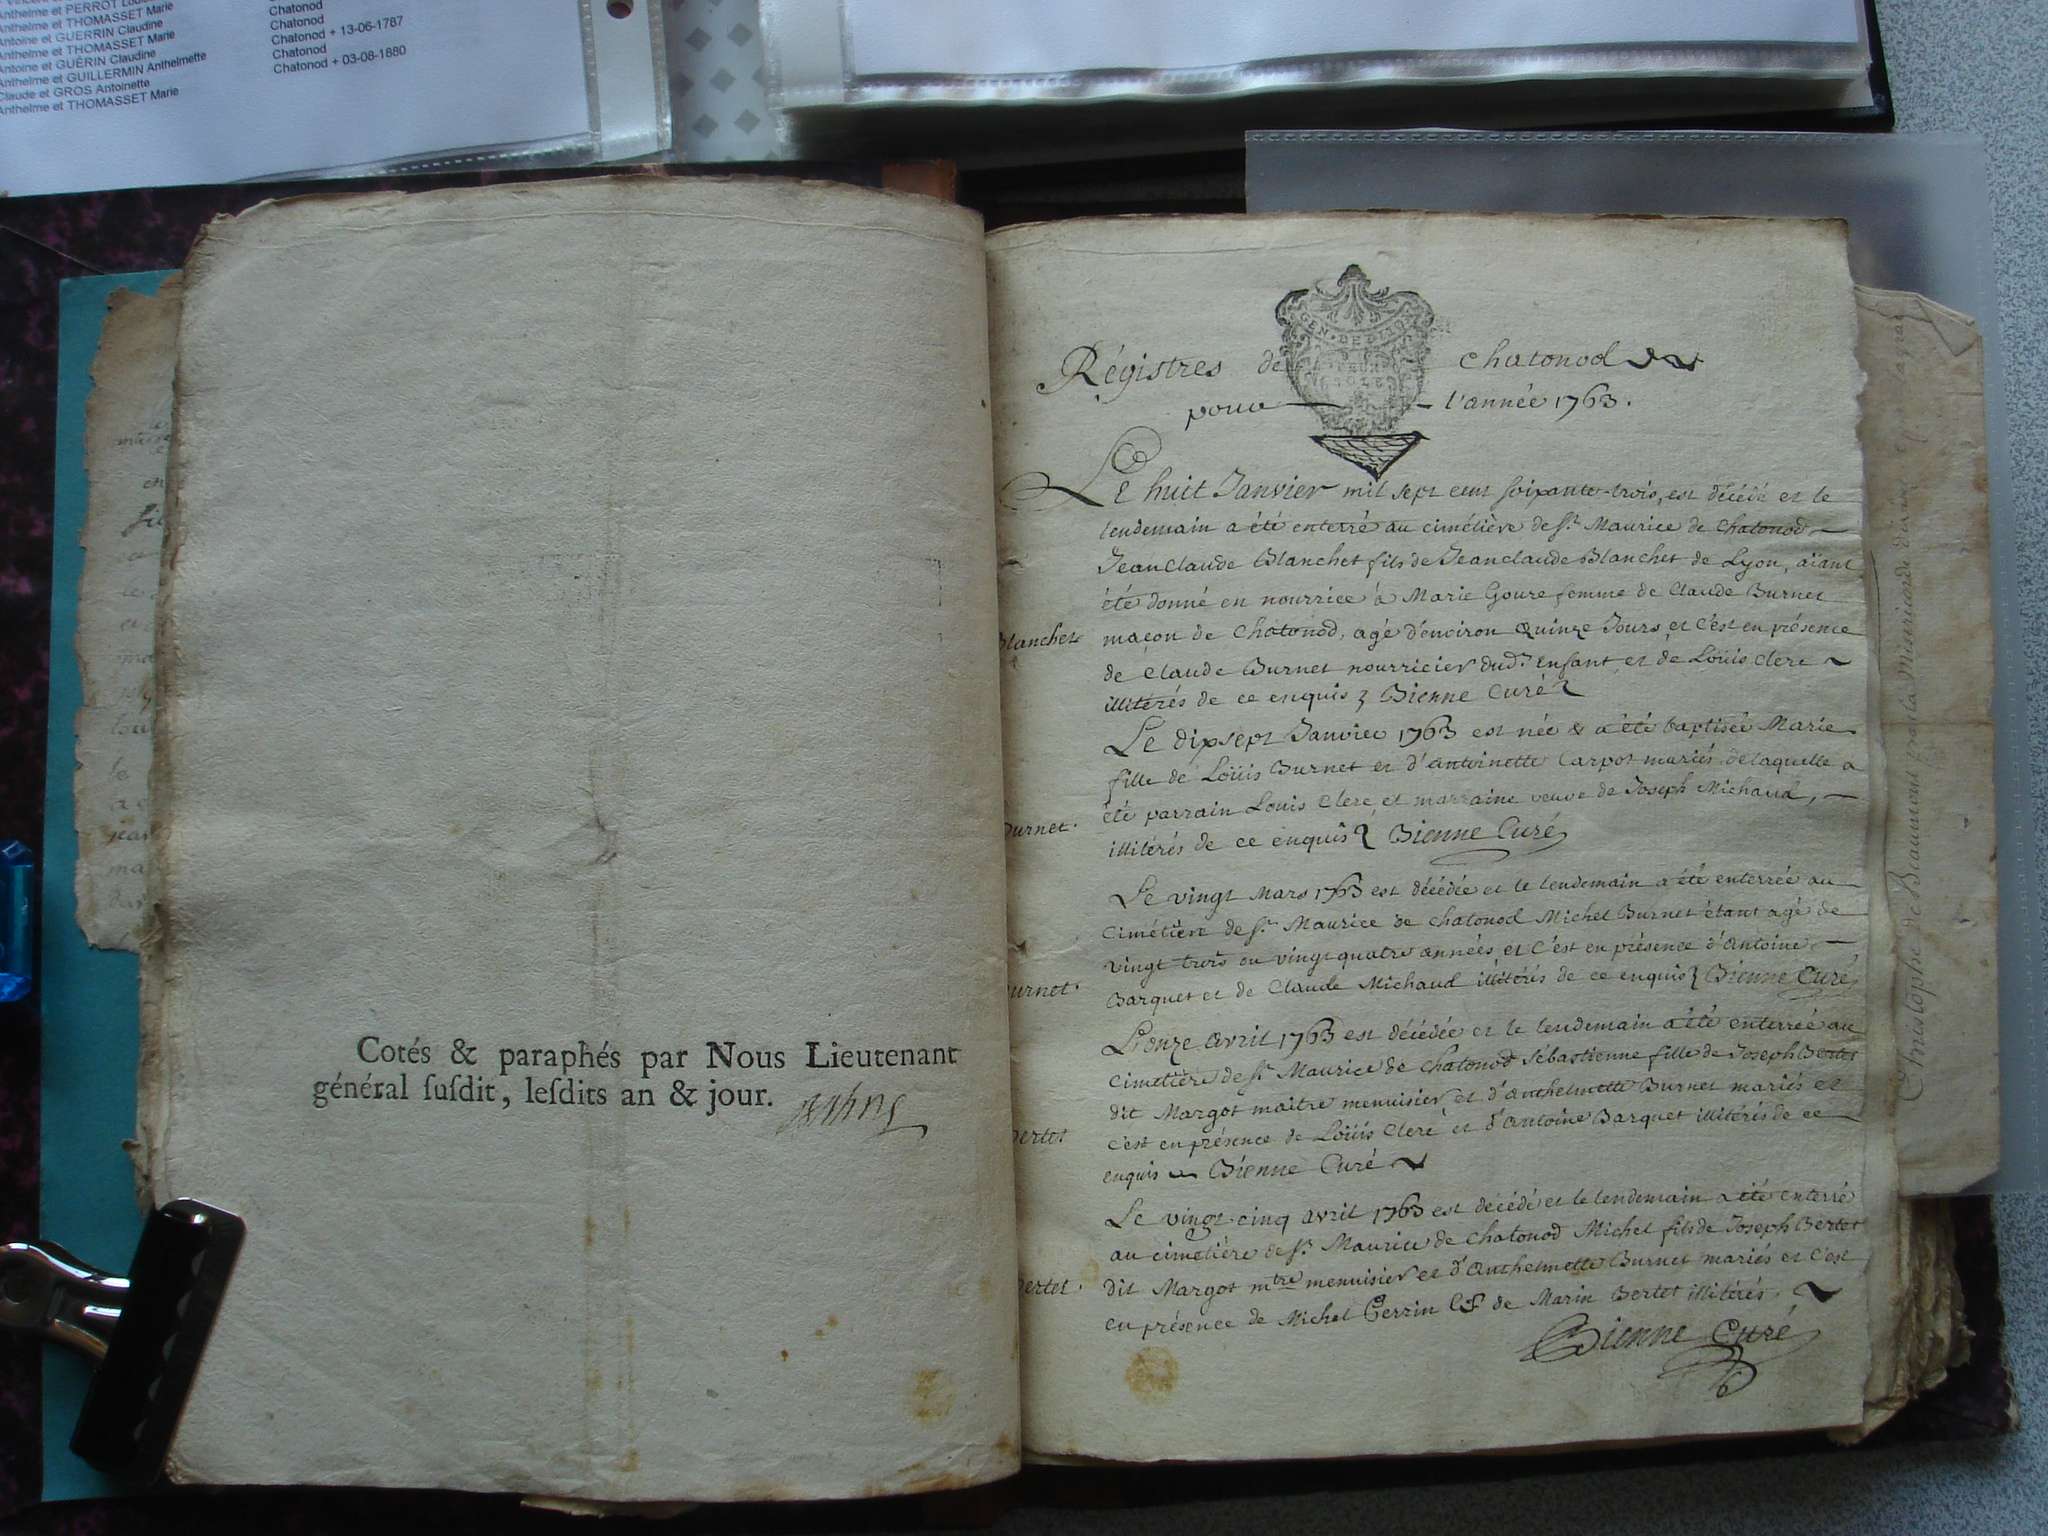 Anthelme et PERROT
Anthelme et THOMASSET Marie
Antoine et GUERRIN Claudine
Anthelme et THOMASSET Marie
Antoine et GUÉRIN Claudine
Anthelme et GUILLERMIN Anthelmette
Claude et GROS Antoinette
Anthelme et THOMASSET Marie
Chatonod
Chatonod
Chatonod + 13-06-1787
Chatonod
Chatonod + 03-08-1880
Cotés & paraphés par Nous Lieutenant
général susdit, lesdits an & jour.
Régistres de Chatonod
GEN. DE DIJON
pour l'année 1763.
Le huit Janvier mil sept cent soixante-trois, est décédé et le
lendemain a été enterré au cimétière de St. Maurice de Chatonod
Jean Claude Blanchet fils de Jeanclaude Blanchet de Lyon, aiant
été donné en nourrice à Marie Goure femme de Claude Burnet
Blanchet maçon de Chatonod, agé d'environ Quinze Jours, et c'est en présence
de Claude Burnet nourricier dud. Enfant et de Loüis Clerc
illitérés de ce enquis Bienne Curé
Le dixsept Janvier 1763 est née & a été baptisée Marie
fille de Loüis Burnet et d'Antoinette Carpot mariés de laquelle a
Burnet. été parrain Louis Clerc et marraine veuve de Joseph Michaud,
illitérés de ce enquis Bienne Curé
Le vingt Mars 1763 est décédée et le lendemain a été enterrée au
Cimétière de St. Maurice de Chatonod Michel Burnet étant agé de
vingt trois ou vingt quatre années et c'est en présence d'Antoine
urnet. Barquet et de Claude Michaud illitérés de ce enquis Bienne Curé
L'onze avril 1763 est décédée et le lendemain a été enterrée au
Cimetière de St. Maurice de Chatonod Sébastienne fille de Joseph Bertet
dit Margot maitre menuisier et d'Anthelmette Burnet mariés et
ertet c'est en présence de Loüis Clerc et d'Antoine Barquet illitérés de ce
enquis Bienne Curé
Le vingt-cinq avril 1763 est décédé et le lendemain a été enterré
au cimetière de St. Maurice de Chatonod Michel fils de Joseph Bertet
ertet. dit Margot mtre menuisier et d'Anthelmette Burnet mariés et c'est
en présence de Michel Perrin & de Marin Bertet illitérés.
Bienne Curé